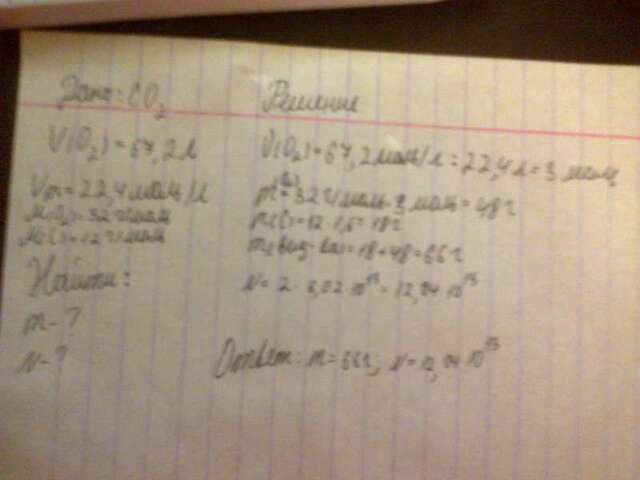 Дано: CO₂
V(O₂) = 67,2 л
Vm = 22,4 моль/л
M(O₂) = 32 г/моль
M(C) = 12 г/моль
Найти:
m - ?
N - ?
Решение
V(O₂) = 67,2 моль/л = 22,4 л = 3 моль
= 32 г/моль · 3 моль = 48 г
m(C) = 12 · 1,5 = 18 г
= 18 + 48 = 66 г
N = 2 · 6,02 · 10²³ = 12,04 · 10²³
Ответ: m = 66 г, N = 12,04 · 10²³